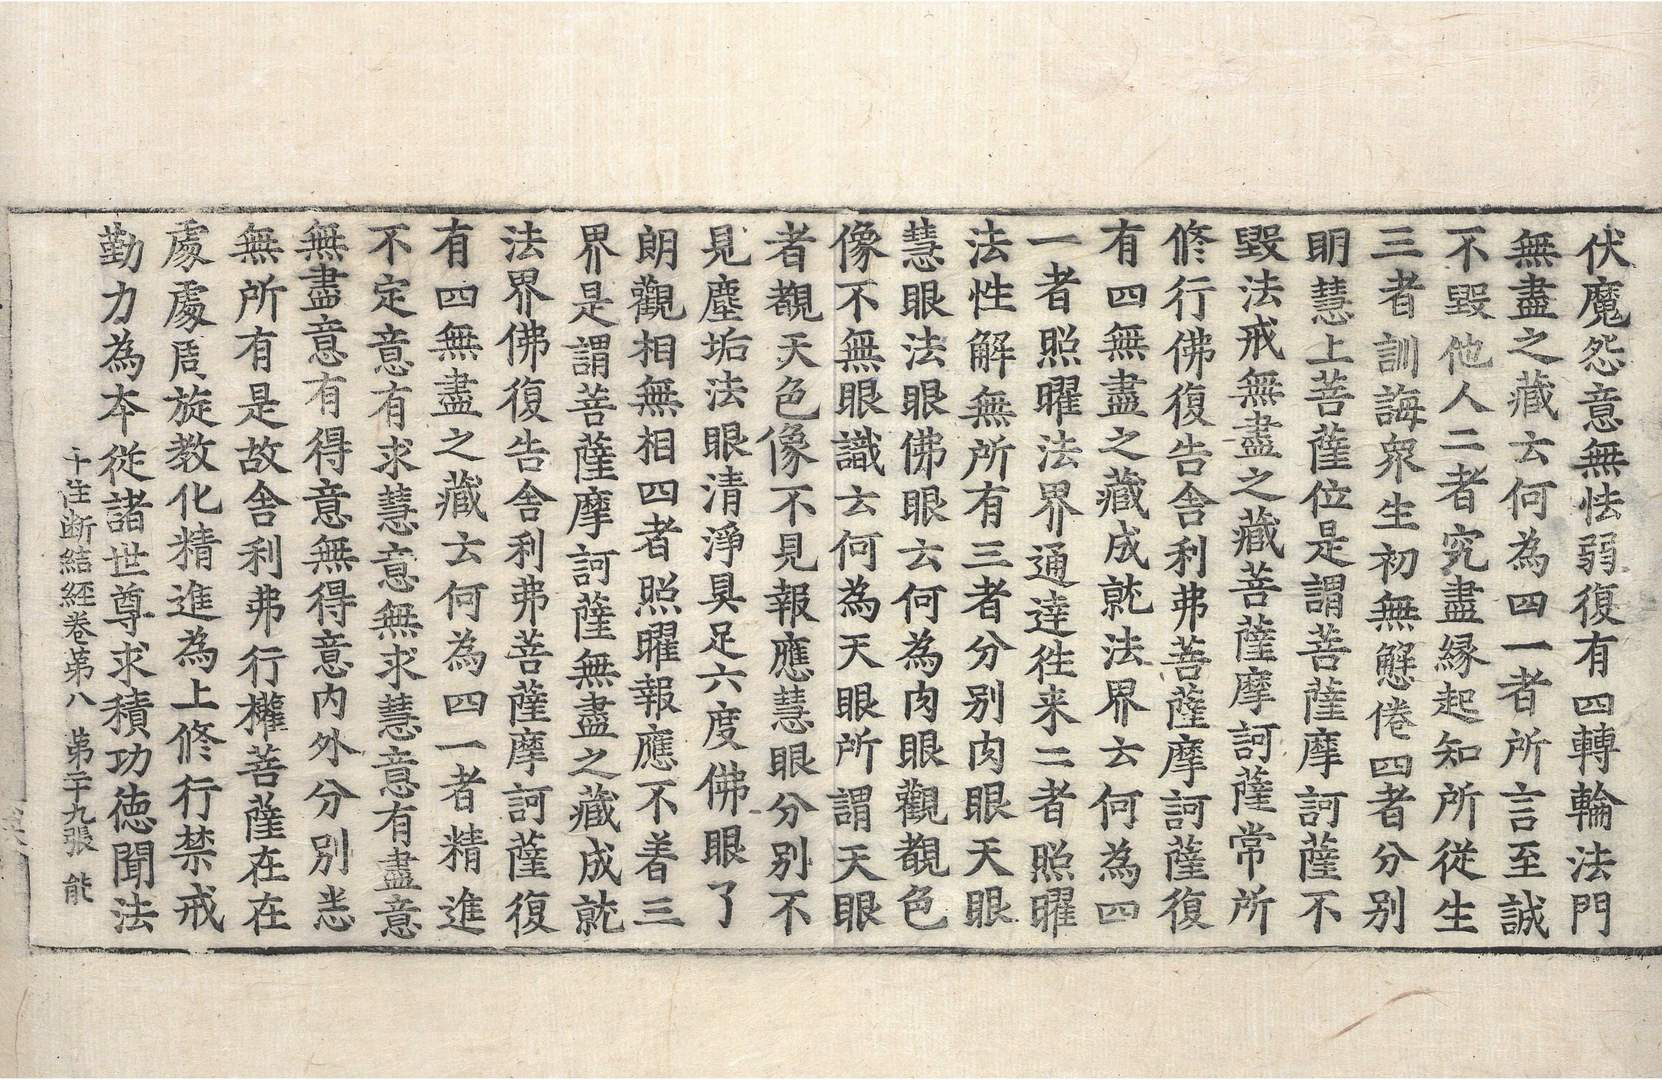 伏魔怨意無怯弱復有四轉輪法門
無盡之藏云何為四一者所言至誠
不毀他人二者究盡緣起知所從生
三者訓誨衆生初無懈惓四者分別
明慧上菩薩位是謂菩薩摩訶薩不
毀法戒無盡之藏菩薩摩訶薩常所
修行佛復告舍利弗菩薩摩訶薩復
有四無盡之藏成就法界云何為四
一者照曜法界通達往来二者照曜
法性解無所有三者分別肉眼天眼
慧眼法眼佛眼云何為肉眼觀覩色
像不無眼識云何為天眼所謂天眼
者覩天色像不見報應慧眼分別不
見塵垢法眼清淨具足六度佛眼了
朗觀相無相四者照曜報應不着三
界是謂菩薩摩訶薩無盡之藏成就
法界佛復告舍利弗菩薩摩訶薩復
有四無盡之藏云何為四一者精進
不定意有求慧意無求慧意有盡意
無盡意有得意無得意內外分別悉
無所有是故舍利弗行權菩薩在在
處處周旋教化精進為上修行禁戒
勤力為本從諸世尊求積功德聞法
十住断結経卷第八 第二十九張 能